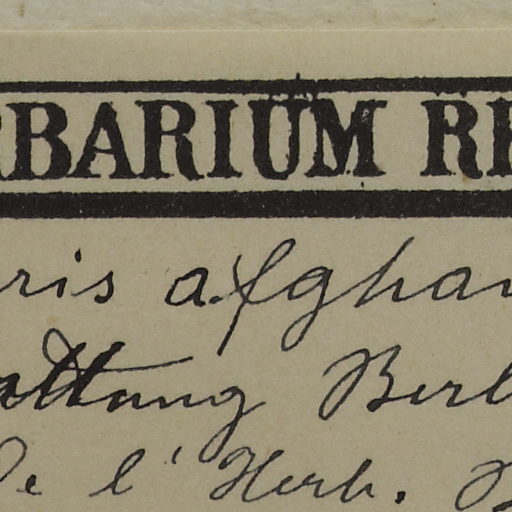 RBARIUM RE
ris afghan
attung Berl
De l'Herb.